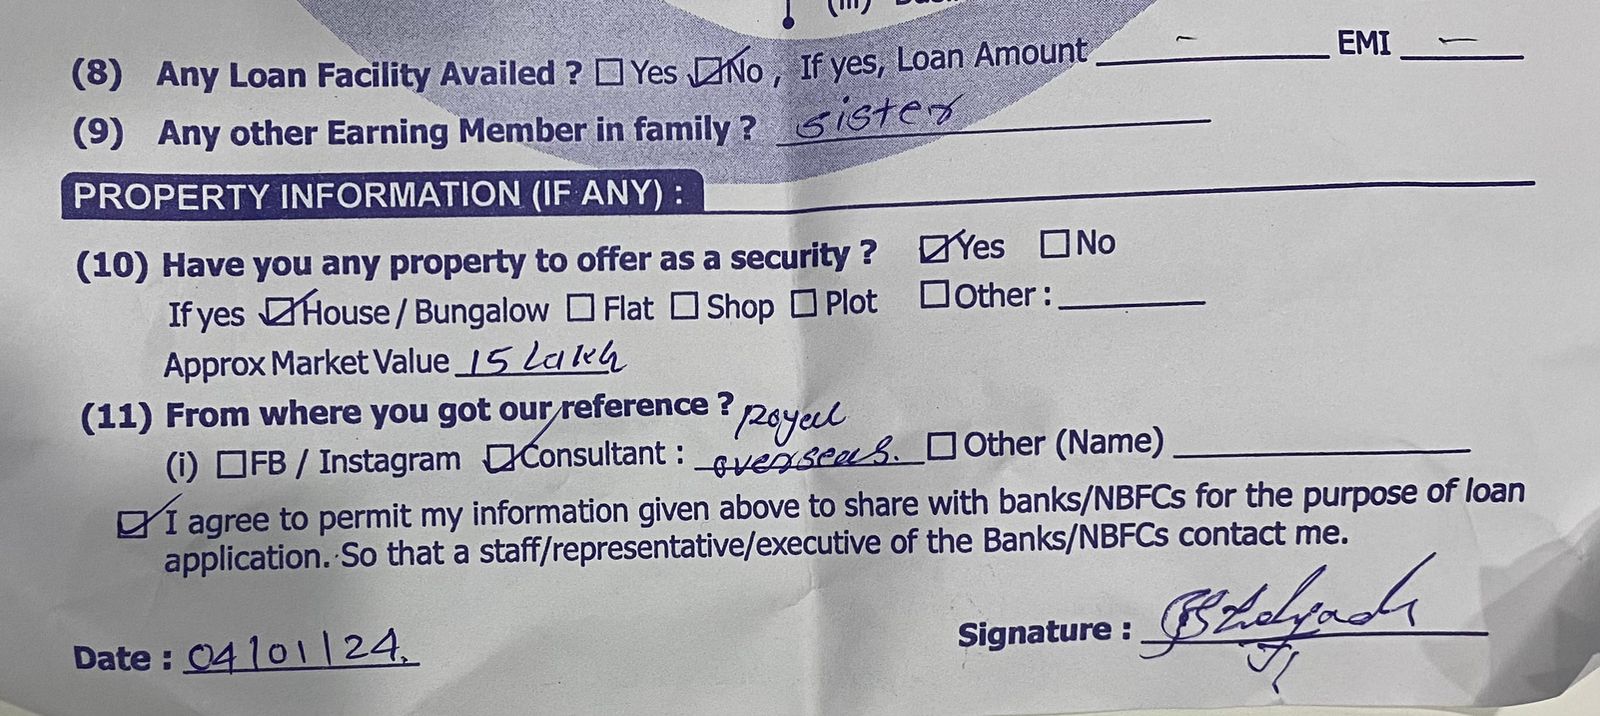 (8) Any Loan Facility Availed ? ☐ Yes ☑ No, If yes, Loan Amount - EMI -
(9) Any other Earning Member in family ? sister
PROPERTY INFORMATION (IF ANY) :
(10) Have you any property to offer as a security ? ☑ Yes ☐ No
If yes ☑ House / Bungalow ☐ Flat ☐ Shop ☐ Plot ☐ Other :
Approx Market Value 15 Lakh
(11) From where you got our reference ? Royal
(i) ☐ FB / Instagram ☑ Consultant : overseas. ☐ Other (Name)
☑ I agree to permit my information given above to share with banks/NBFCs for the purpose of loan
application. So that a staff/representative/executive of the Banks/NBFCs contact me.
Date : 04/01/24.
Signature :